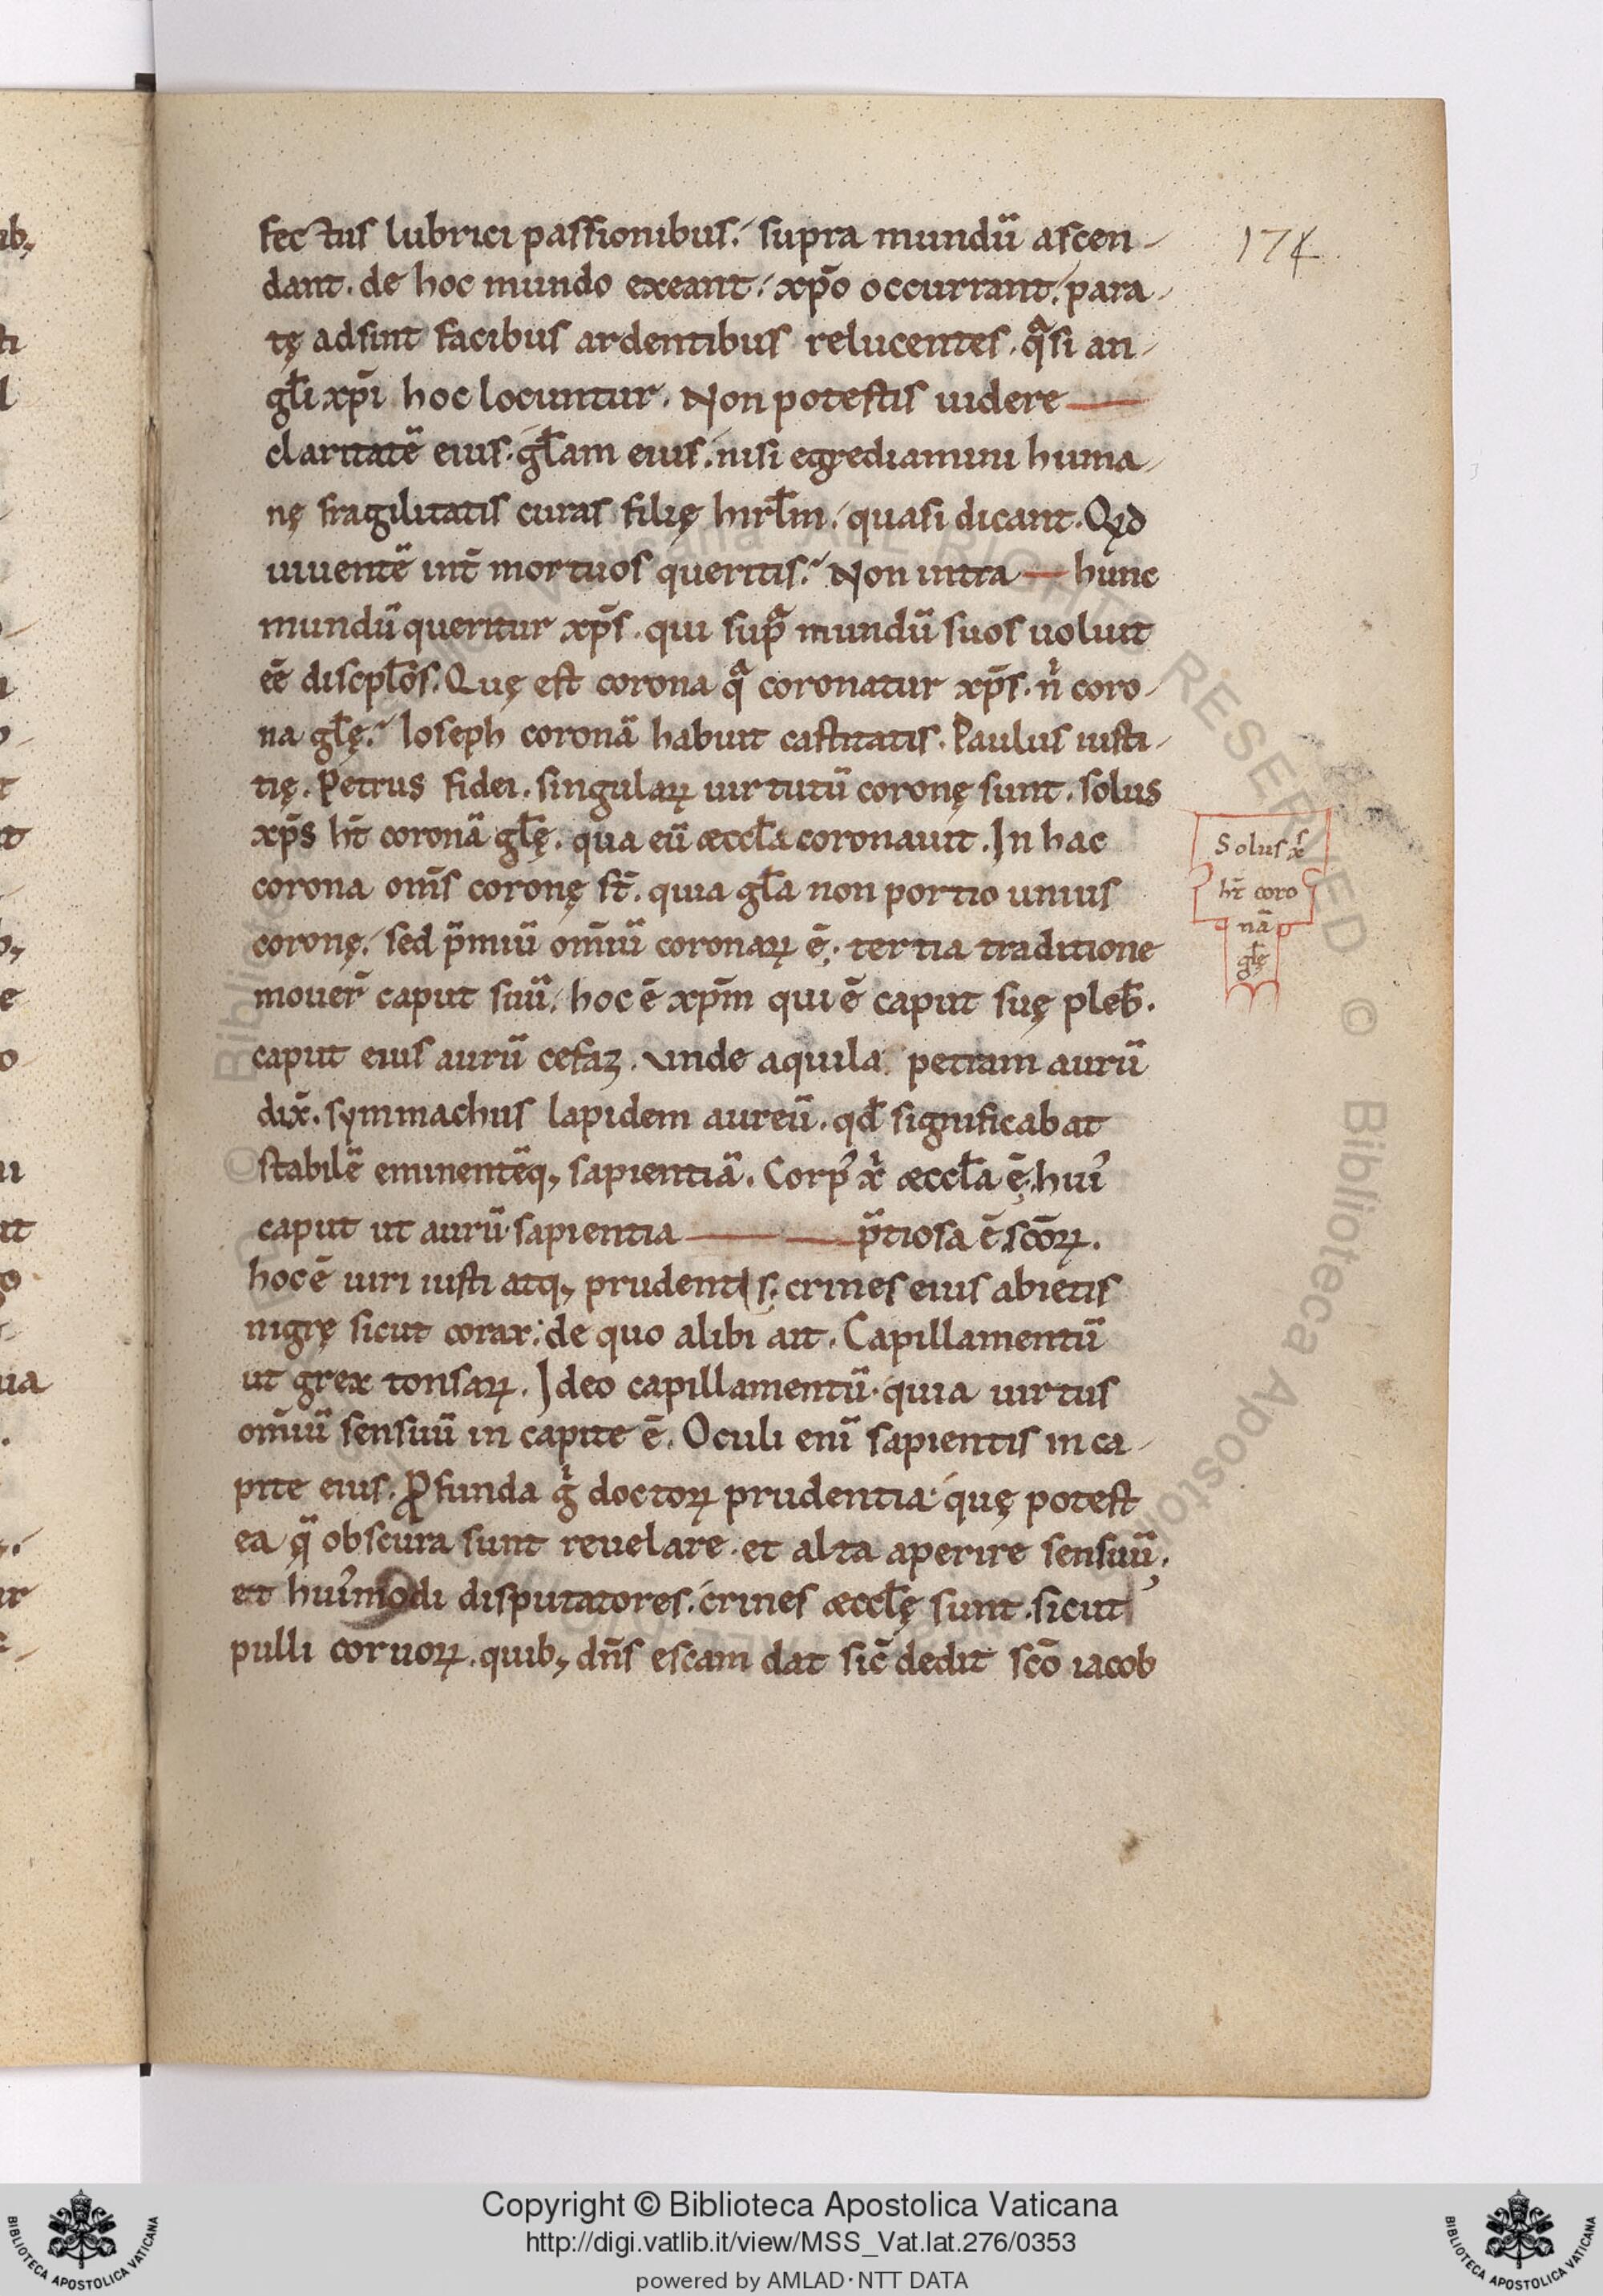 fectus lubrici passionibus. supra mundū ascen-
dant. de hoc mundo exeant. xp̄o occurrant. para-
tę adsint facibus ardentibus relucentes. qͣsi an-
gl̄i xp̄i hoc locuntur. Non potestis uidere
claritatē eius. gl̄am eius. nisi egrediamini huma-
nę fragilitatis curas filię hierl̄m. quasi dicant. Qͥd
uiuentē int̄ mortuos queritis. Non intra hunc
mundū queritur xp̄s. qui supͣ mundū suos uoluit
eē discipl̄os. Quę est corona qͣ coronatur xp̄s. nͥ coro-
na gl̄ę. Ioseph coronā habuit castitatis. Paulus iusti-
tię. Petrus fidei. singulaꝝ uirtutū coronę sunt. solus
xp̄s ht̄ coronā gl̄ę. qua eū æccl̄a coronauit. In hac
corona om̄s coronę st̄. quia gl̄a non portio unius
coronę. sed p̄miū om̄iū coronaꝝ ē. tertia traditione
mouer̄ caput suū. hoc ē xp̄m qui ē caput suę pleb̄.
caput eius aurū cefaz. unde aquila petram aurū
dix̄. symmachus lapidem aureū. qd̄ significabat
stabilē eminentēq; sapientiā. Corp᾽ xͥ æccl̄a ē. hui᾽
caput ut aurū sapientia p̄tiosa ē sc̄oꝝ.
hoc ē uiri iusti atq; prudentis. crines eius abietis
nigrę sicut corax. de quo alibi ait. Capillamentū
ut grex tonsaꝝ. Ideo capillamentū. quia uirtus
om̄iū sensuū in capite ē. Oculi enī sapientis in ca-
pite eius. Ꝓfunda gͥ doctoꝝ prudentia. quę potest
ea q̄ obscura sunt reuelare. et alta aperire sensuū.
et hui᾽modi disputatores. crines æccl̄ę sunt. sicut
pulli coruoꝝ. quib; dn̄s escam dat sic̄ dedit sc̄o iacob
174
Solus x̄
ht̄ coro
nā
gl̄ę
Copyright © Biblioteca Apostolica Vaticana
http://digi.vatlib.it/view/MSS_Vat.lat.276/0353
powered by AMLAD·NTT DATA
BIBLIOTECA APOSTOLICA VATICANA
BIBLIOTECA APOSTOLICA VATICANA